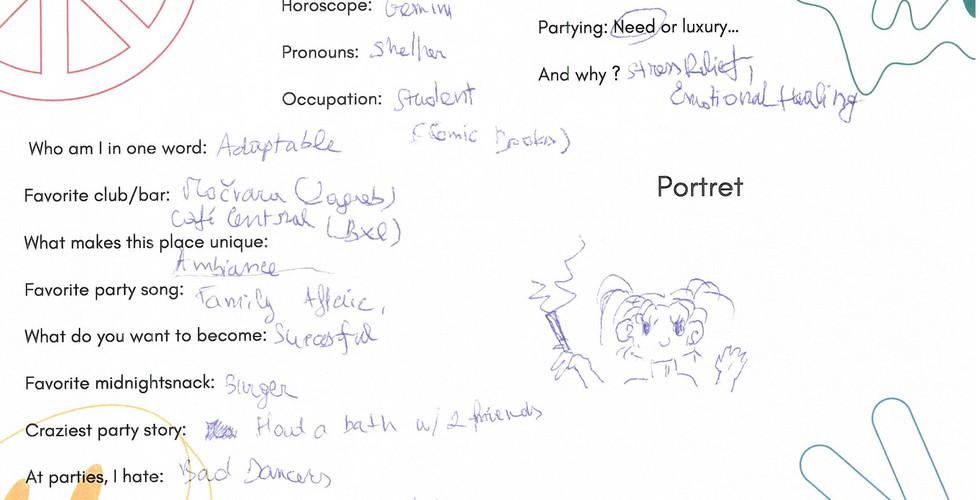 Horoscope: Gemini
Pronouns: She/her
Occupation: Student
(Comic Books)
Partying: Need or luxury...
And why ? Stress Relief,
Emotional Healing
Who am I in one word: Adaptable
Favorite club/bar: Močvara (Zagreb)
Café Central (Bxl)
What makes this place unique:
Ambiance
Favorite party song: Family Affair,
What do you want to become: Sucessful
Favorite midnightsnack: Burger
Craziest party story: a bath w/ 2 friends
At parties, I hate: Bad Dancers
Portret